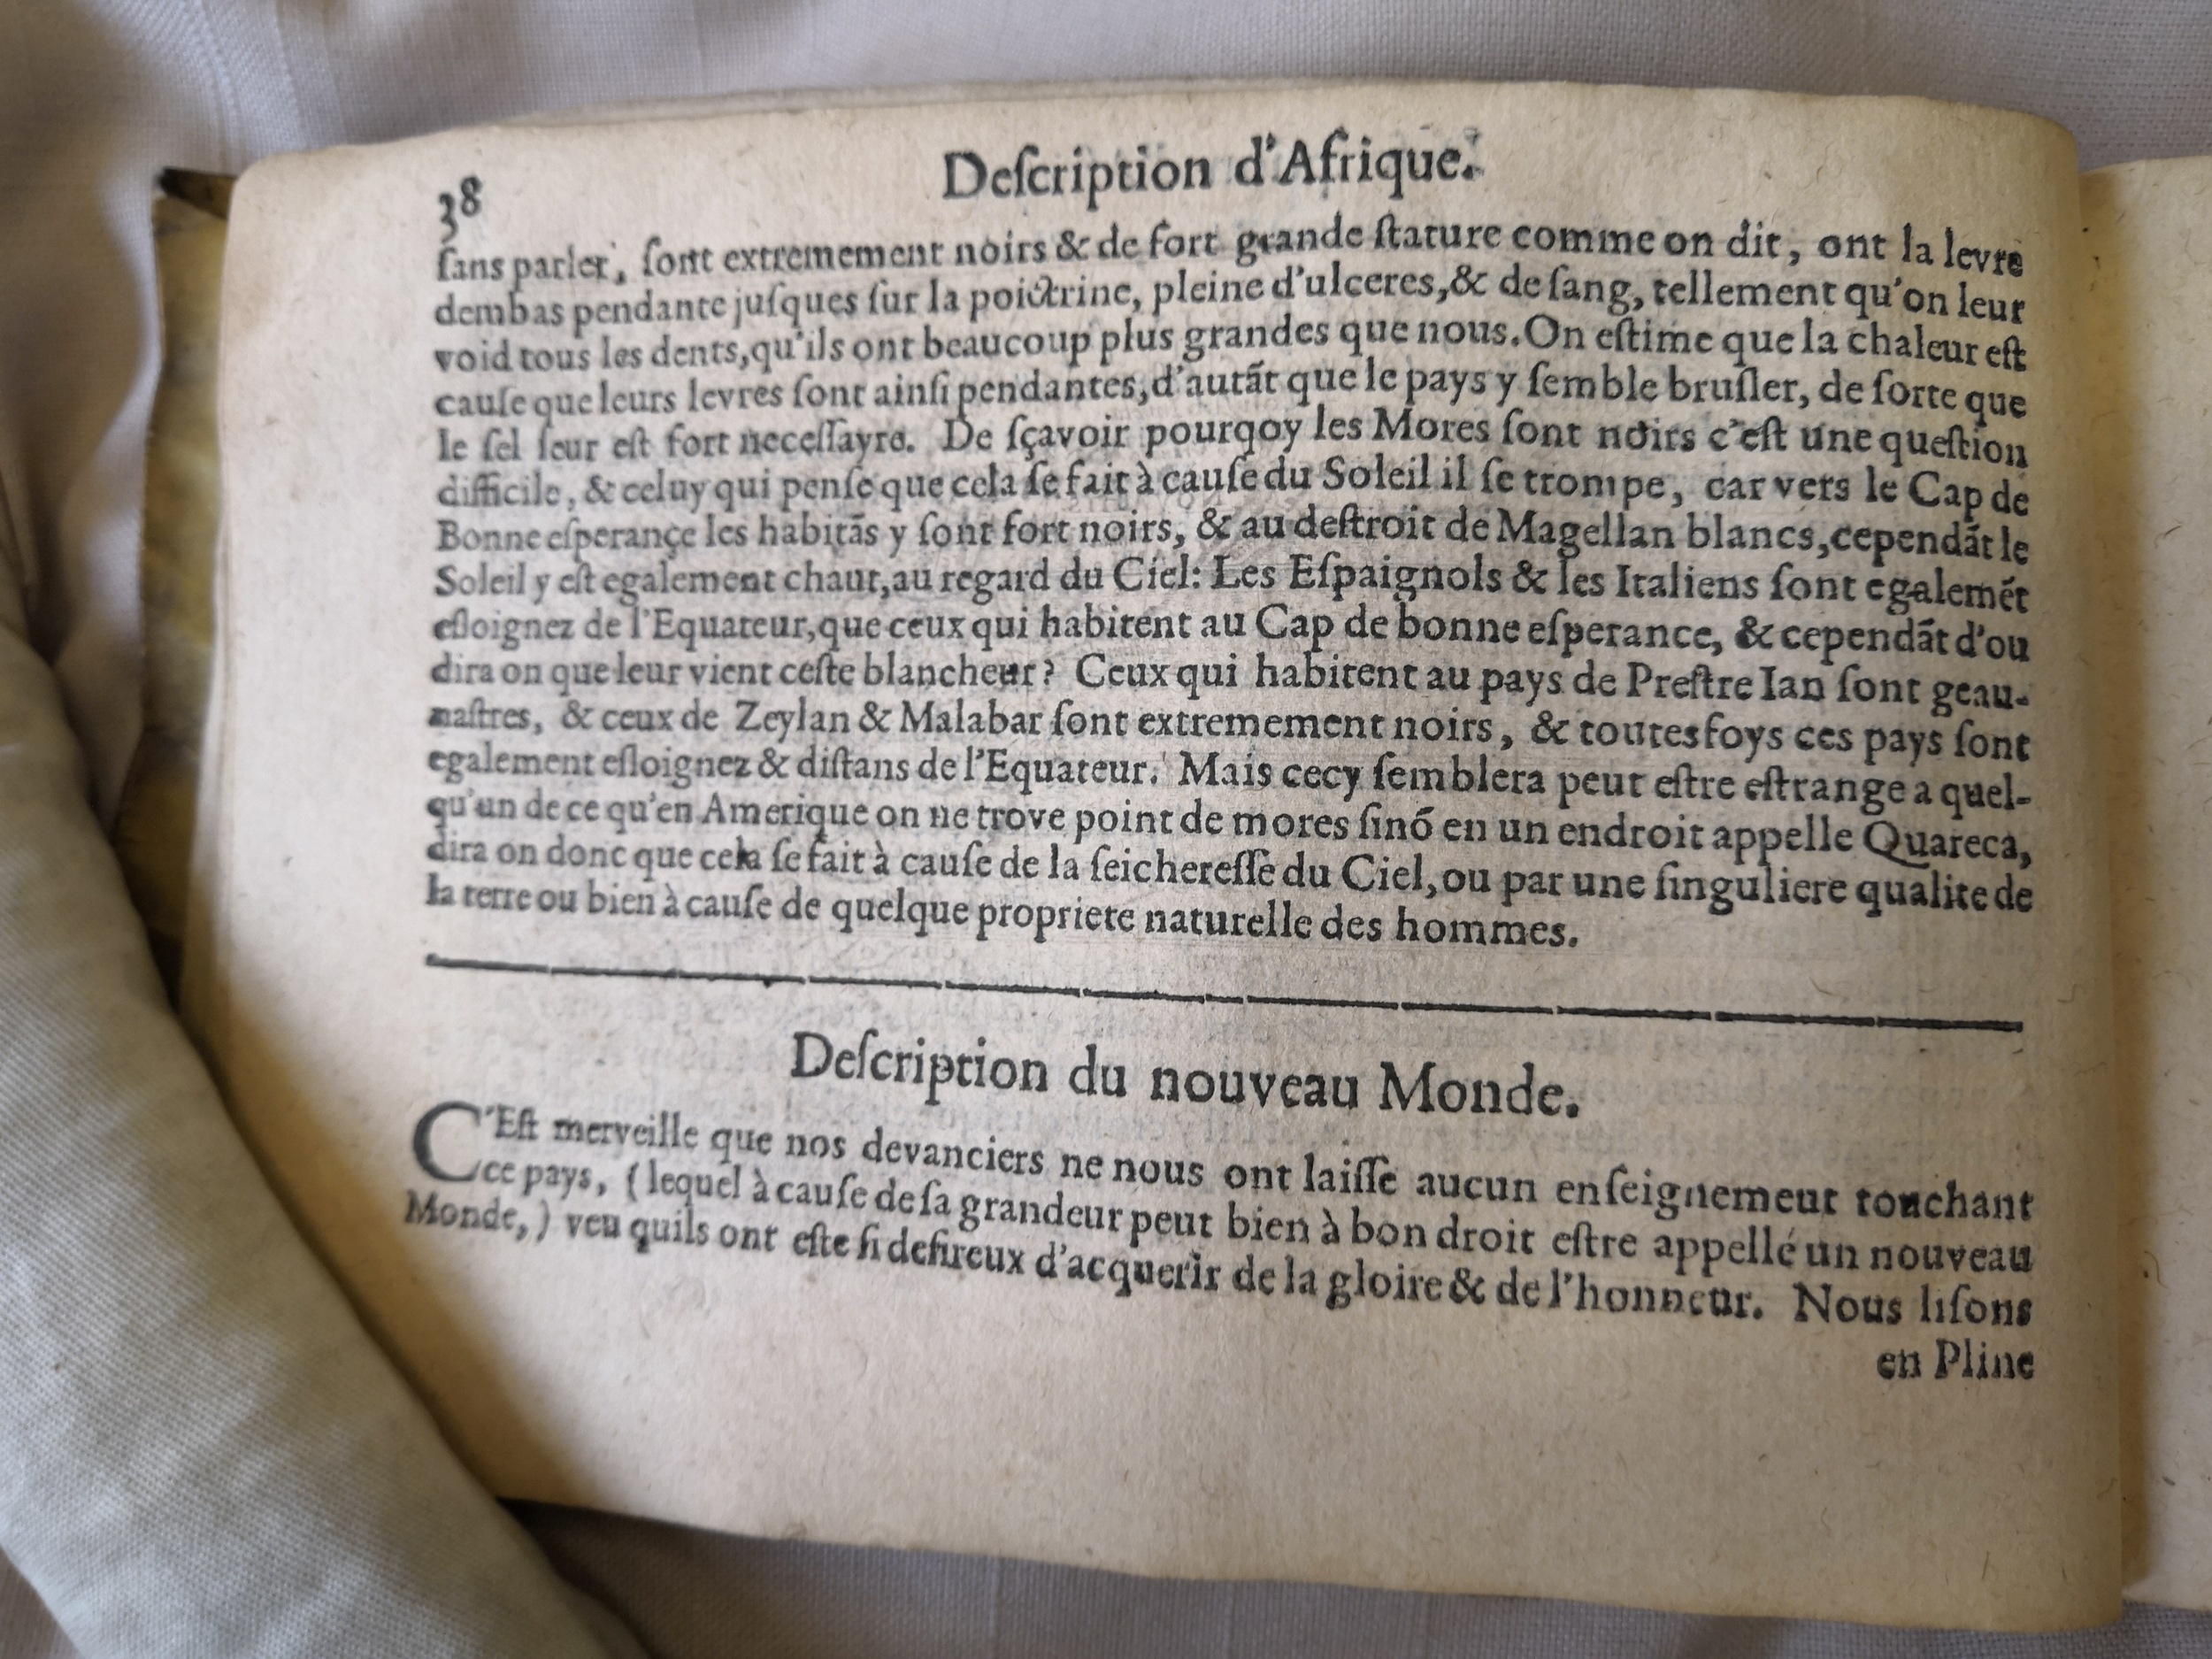 38
Deſcription d'Afrique.
ſans parler, ſont extremement noirs & de fort grande ſtature comme on dit, ont la levre
dembas pendante juſques ſur la poictrine, pleine d'ulceres, & de ſang, tellement qu'on leur
void tous les dents, qu'ils ont beaucoup plus grandes que nous. On eſtime que la chaleur eſt
cauſe que leurs levres ſont ainſi pendantes, d'autãt que le pays y ſemble bruſler, de ſorte que
le ſel leur eſt fort neceſſayre. De ſçavoir pourqoy les Mores ſont noirs c'eſt une queſtion
difficile, & celuy qui penſe que cela ſe fait à cauſe du Soleil il ſe trompe, car vers le Cap de
Bonne eſperançe les habitãs y ſont fort noirs, & au deſtroit de Magellan blancs, cependãt le
Soleil y eſt egalement chaut, au regard du Ciel: Les Eſpaignols & les Italiens ſont egalemẽt
eſloignez de l'Equateur, que ceux qui habitent au Cap de bonne eſperance, & cependãt d'ou
dira on que leur vient ceſte blancheur? Ceux qui habitent au pays de Preſtre Ian ſont geau-
naſtres, & ceux de Zeylan & Malabar ſont extremement noirs, & toutesfoys ces pays ſont
egalement eſloignez & diſtans de l'Equateur. Mais cecy ſemblera peut eſtre eſtrange a quel-
qu'un de ce qu'en Amerique on ne trove point de mores ſinõ en un endroit appelle Quareca,
dira on donc que cela ſe fait à cauſe de la ſeichereſſe du Ciel, ou par une ſinguliere qualite de
la terre ou bien à cauſe de quelque propriete naturelle des hommes.
Deſcription du nouveau Monde.
C'Eſt merveille que nos devanciers ne nous ont laiſſe aucun enſeignemeut touchant
ce pays, (lequel à cauſe de ſa grandeur peut bien à bon droit eſtre appellé un nouveau
Monde,) veu quils ont eſte ſi deſireux d'acquerir de la gloire & de l'honneur. Nous liſons
en Pline